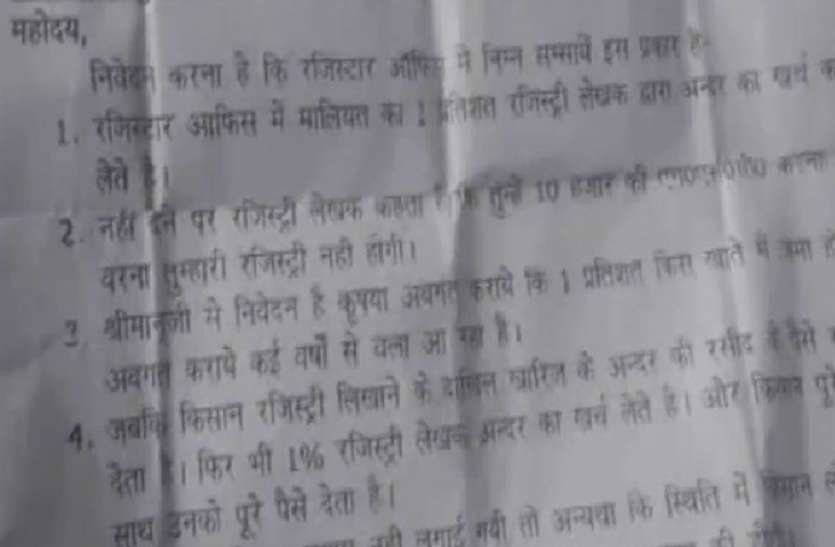 महोदय,
निवेदन करना है कि रजिस्टार ऑफिस में निम्न समस्यायें इस प्रकार है-
1. रजिस्टार आफिस में मालियत का 1 प्रतिशत रजिस्ट्री लेखक द्वारा अन्दर का खर्च
लेते है।
2. नही देने पर रजिस्ट्री लेखक कहता है कि तुम्हें 10 हजार की करना
वरना तुम्हारी रजिस्ट्री नही होगी।
3. श्रीमानजी से निवेदन है कृपया अवगत कराये कि 1 प्रतिशत किस खाते में जमा
अवगत कराये कई वर्षो से चला आ रहा है।
4. जबकि किसान रजिस्ट्री लिखाने के दाखिल खारिज के अन्दर की रसीद के पैसे
देता है। फिर भी 1% रजिस्ट्री लेखक अन्दर का खर्च लेते है। और किसान पूरे
साथ उनको पूरे पैसे देता है।
नही लगाई गयी तो अन्यथा कि स्थिति में